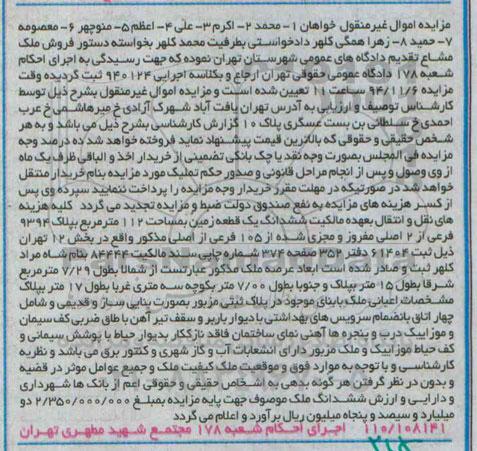 مزایده اموال غیرمنقول خواهان ۱- محمد ۲- اکرم ۳- علی ۴- اعظم ۵- منوچهر ۶- معصومه
۷- حمید ۸- زهرا همگی کلهر دادخواستی بطرفیت محمد کلهر بخواسته دستور فروش ملک
مشاع تقدیم دادگاه های عمومی شهرستان تهران نموده که جهت رسیدگی به اجرای احکام
شعبه ۱۷۸ دادگاه عمومی حقوقی تهران ارجاع و بکلاسه اجرایی ۹۴۰۱۲۴ ثبت گردیده وقت
مزایده ۹۴/۱۱/۶ ساعت ۱۱ تعیین شده است و مزایده اموال غیرمنقول بشرح ذیل توسط
کارشناس توصیف و ارزیابی به آدرس تهران یافت آباد شهرک آزادی خ میرهاشمی خ عرب
احمدی خ سلطانی بن بست عسگری پلاک ۱۰ گزارش کارشناسی بشرح ذیل می باشد و به هر
شخص حقیقی و حقوقی که بالاترین قیمت پیشنهاد نماید فروخته خواهد شد ده درصد وجه
مزایده فی المجلس بصورت وجه نقد یا چک بانکی تضمینی از خریدار اخذ و الباقی ظرف یک ماه
از وی وصول و پس از انجام مراحل قانونی و صدور حکم تملیک مورد مزایده بنام خریدار منتقل
خواهد شد در صورتیکه در مهلت مقرر خریدار وجه مزایده را پرداخت ننمایید سپرده وی پس
از کسر هزینه های مزایده به نفع صندوق دولت ضبط و مزایده تجدید می گردد کلیه هزینه
های نقل و انتقال بعهده مالکیت ششدانگ یک قطعه زمین بمساحت ۱۱۲ مترمربع بپلاک ۹۳۹۴
فرعی از ۲ اصلی مفروز و مجزی شده از ۱۰۵ فرعی از اصلی مذکور واقع در بخش ۱۲ تهران
ذیل ثبت ۶۱۴۰۴ دفتر ۳۵۲ صفحه ۳۷۴ شماره چاپی سند مالکیت ۸۴۴۴۴ بنام شاه مراد
کلهر ثبت و صادر شده است ابعاد عرصه ملک مذکور عبارتست از شمالا بطول ۷/۲۹ مترمربع
شرقا بطول ۱۵ متر بپلاک و جنوبا بطول ۷/۰۰ متر بکوچه سه متری غربا بطول ۱۷ متر بپلاک
مشخصات اعیانی ملک با بنای موجود در پلاک ثبتی مزبور بصورت بنایی ساز و قدیمی و شامل
چهار اتاق بانضمام سرویس های بهداشتی با دیوار باربر و سقف تیر آهن با طاق ضربی کف سیمان
و موزاییک درب و پنجره ها آهنی نمای ساختمان فاقد نازککار بدیوار حیاط با پوشش سیمانی و
کف حیاط موزاییک و ملک مزبور دارای انشعابات آب و گاز شهری و کنتور برق می باشد و نظریه
کارشناسی و با توجه به موارد فوق و موقعیت ملک کیفیت ملک و جمیع عوامل موثر در قضیه
و بدون در نظر گرفتن هر گونه بدهی به اشخاص حقیقی و حقوقی اعم از بانک ها شهرداری
و دارایی و ارزش ششدانگ ملک موصوف جهت پایه مزایده بمبلغ ۲/۳۵۰/۰۰۰/۰۰۰ دو
میلیارد و سیصد و پنجاه میلیون ریال برآورد و اعلام می گردد
۱۱۰/۱۰۸۱۴۱ اجرای احکام شعبه ۱۷۸ مجتمع شهید مطهری تهران